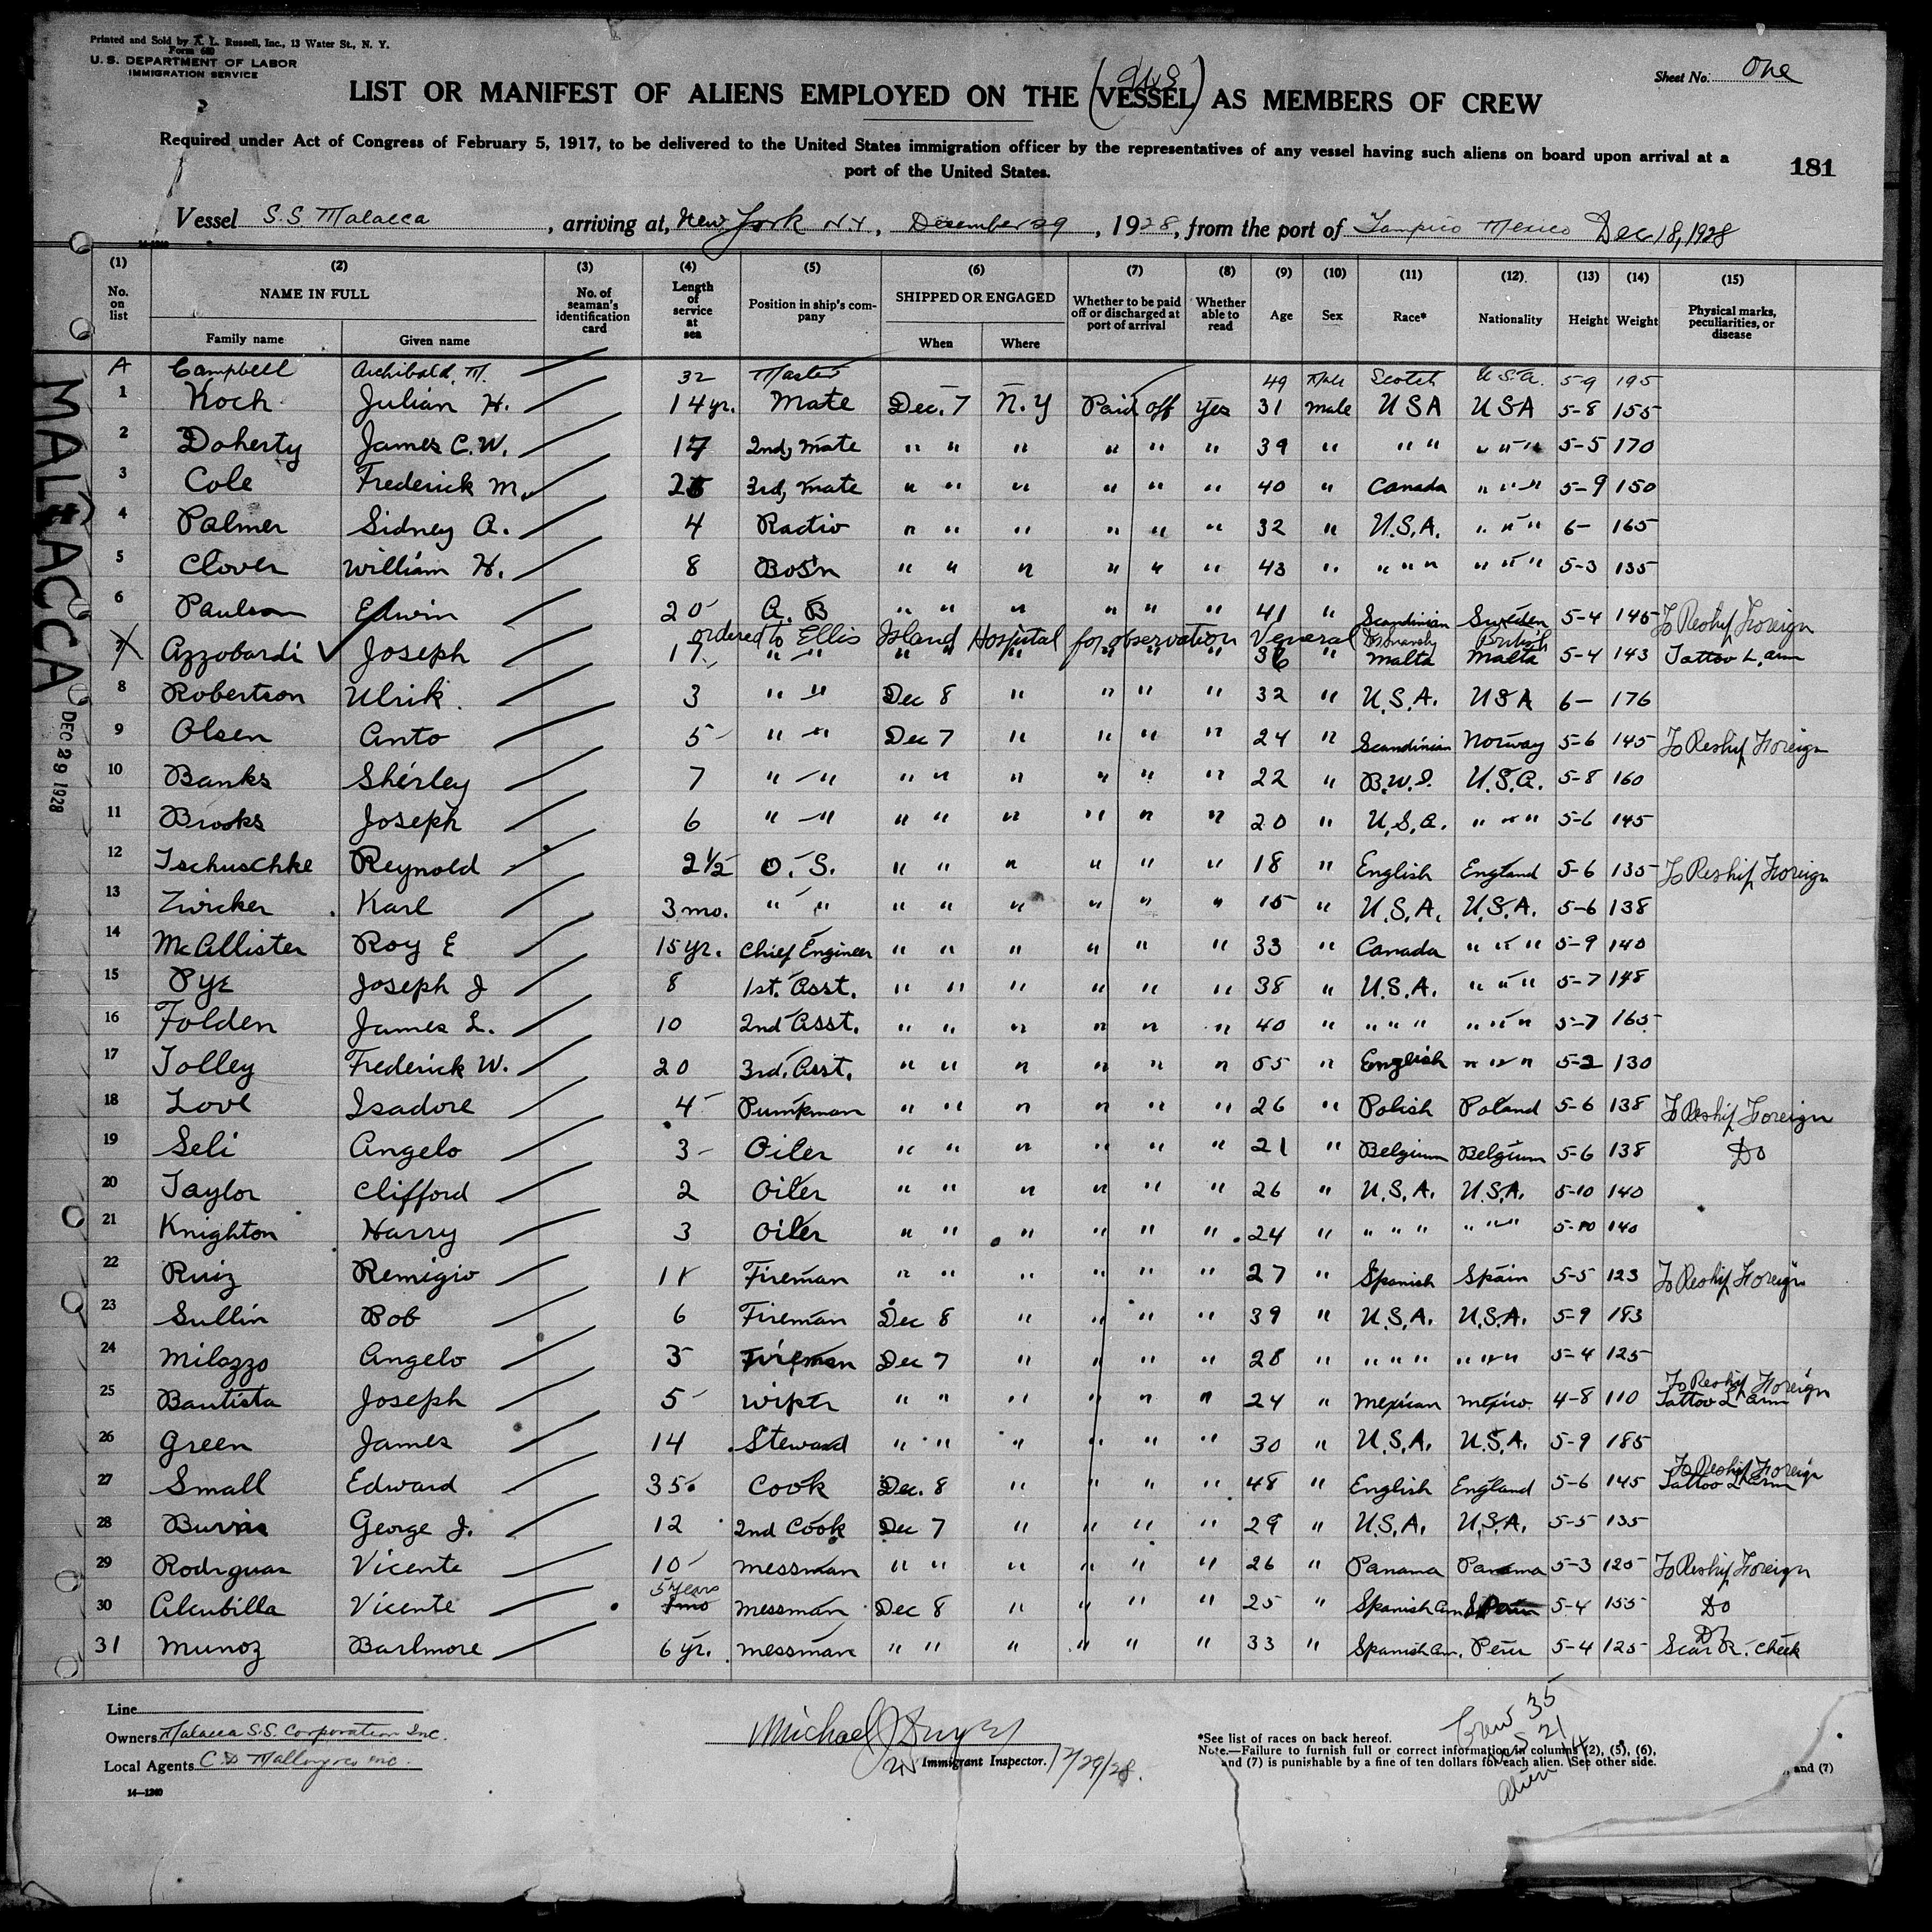 Printed and Sold by A. L. Russell, Inc., 13 Water St., N. Y.
Form 680
U. S. DEPARTMENT OF LABOR
IMMIGRATION SERVICE
Sheet No. One
LIST OR MANIFEST OF ALIENS EMPLOYED ON THE (VESSEL) AS MEMBERS OF CREW
Required under Act of Congress of February 5, 1917, to be delivered to the United States immigration officer by the representatives of any vessel having such aliens on board upon arrival at a
port of the United States.
181
Vessel S.S. Malacca, arriving at, New York N.Y., December 29, 1928, from the port of Tampico Mexico Dec 18, 1928
14-1240
(1) (2) (3) (4) (5) (6) (7) (8) (9) (10) (11) (12) (13) (14) (15)
No. on list NAME IN FULL Family name Given name No. of seaman's identification card Length of service at sea Position in ship's company SHIPPED OR ENGAGED When Where Whether to be paid off or discharged at port of arrival Whether able to read Age Sex Race* Nationality Height Weight Physical marks, peculiarities, or disease
A Campbell Archibald M. 32 Master 49 Male Scotch U.S.A. 5-9 195
1 Koch Julian H. 14 yr. Mate Dec. 7 N.Y Paid off Yes 31 male USA USA 5-8 155
2 Doherty James C.W. 17 2nd, mate " " " " " " 39 " " " " " " 5-5 170
3 Cole Frederick M. 3rd, mate " " " " " " 40 " Canada " " " 5-9 150
4 Palmer Sidney A. 4 Radio " " " " " " 32 " U.S.A. " " " 6- 165
5 Clover William H. 8 Bos'n " " " " " " 43 " " " " " " " 5-3 135
6 Paulson Edwin 20 A. B " " " " " " 41 " Scandinian Sweden 5-4 145 To Reship Foreign
ordered to Ellis Island Hospital for observation Veneral British
7 Azzobardi Joseph 17 " " " " " " " " 36 " Malta Malta 5-4 143 Tattoo L. arm
8 Robertson Ulrik. 3 " " Dec 8 " " " " 32 " U.S.A. USA 6- 176
9 Olsen Anto 5 " " Dec 7 " " " " 24 " Scandinian Norway 5-6 145 To Reship Foreign
10 Banks Shirley 7 " " " " " " " " 22 " B.W.I. U.S.A. 5-8 160
11 Brooks Joseph 6 " " " " " " " " 20 " U.S.A. " " " 5-6 145
12 Tschuschke Reynold 2 1/2 O. S. " " " " " " 18 " English England 5-6 135 To Reship Foreign
13 Zwicker Karl 3 mo. " " " " " " " " 15 " U.S.A. U.S.A. 5-6 138
14 McAllister Roy E 15 yr. Chief Engineer " " " " " " 33 " Canada " " " 5-9 140
15 Pye Joseph J 8 1st. Asst. " " " " " " 38 " U.S.A. " " " 5-7 148
16 Folden James L. 10 2nd Asst. " " " " " " 40 " " " " " " " 5-7 165
17 Tolley Frederick W. 20 3rd. Asst. " " " " " " 55 " English " " " 5-2 130
18 Love Isadore 4 Pumpman " " " " " " 26 " Polish Poland 5-6 138 To Reship Foreign
19 Seli Angelo 3 Oiler " " " " " " 21 " Belgium Belgium 5-6 138 Do
20 Taylor Clifford 2 Oiler " " " " " " 26 " U.S.A. U.S.A. 5-10 140
21 Knighton Harry 3 Oiler " " " " " " 24 " " " " " " " 5-10 140
22 Ruiz Remigio 11 Fireman " " " " " " 27 " Spanish Spain 5-5 123 To Reship Foreign
23 Sullin Bob 6 Fireman Dec 8 " " " " 39 " U.S.A. U.S.A. 5-9 183
24 Milazzo Angelo 5 Fireman Dec 7 " " " " 28 " " " " " " " 5-4 125
25 Bautista Joseph 5 Wiper " " " " " " 24 " Mexican Mexico 4-8 110 To Reship Foreign Tattoo L arm
26 Green James 14 Steward " " " " " " 30 " U.S.A. U.S.A. 5-9 185
27 Small Edward 35 Cook Dec. 8 " " " " 48 " English England 5-6 145 To Reship Foreign Tattoo L arm
28 George J. 12 2nd Cook Dec 7 " " " " 29 " U.S.A. U.S.A. 5-5 135
29 Rodrguan Vicente 10 messman " " " " " " 26 " Panama Panama 5-3 125 To Reship Foreign
30 Alcubilla Vicente 5 years messman Dec 8 " " " " 25 " Spanish Am Spain 5-4 155 Do
31 Munoz Barlmore 6 yr. messman " " " " " " 33 " Spanish Am. Peru 5-4 125 Do Scar R. cheek
MALACCA
DEC 29 1928
Line
Owners Malacca S.S. Corporation Inc.
Local Agents C.D Mallory & Co inc.
14-1240
Michael
Immigrant Inspector. 12/29/28.
*See list of races on back hereof.
Note.—Failure to furnish full or correct information in columns (2), (5), (6),
and (7) is punishable by a fine of ten dollars for each alien. See other side.
, and (7)
Crew 35
U S 21
Alien 14